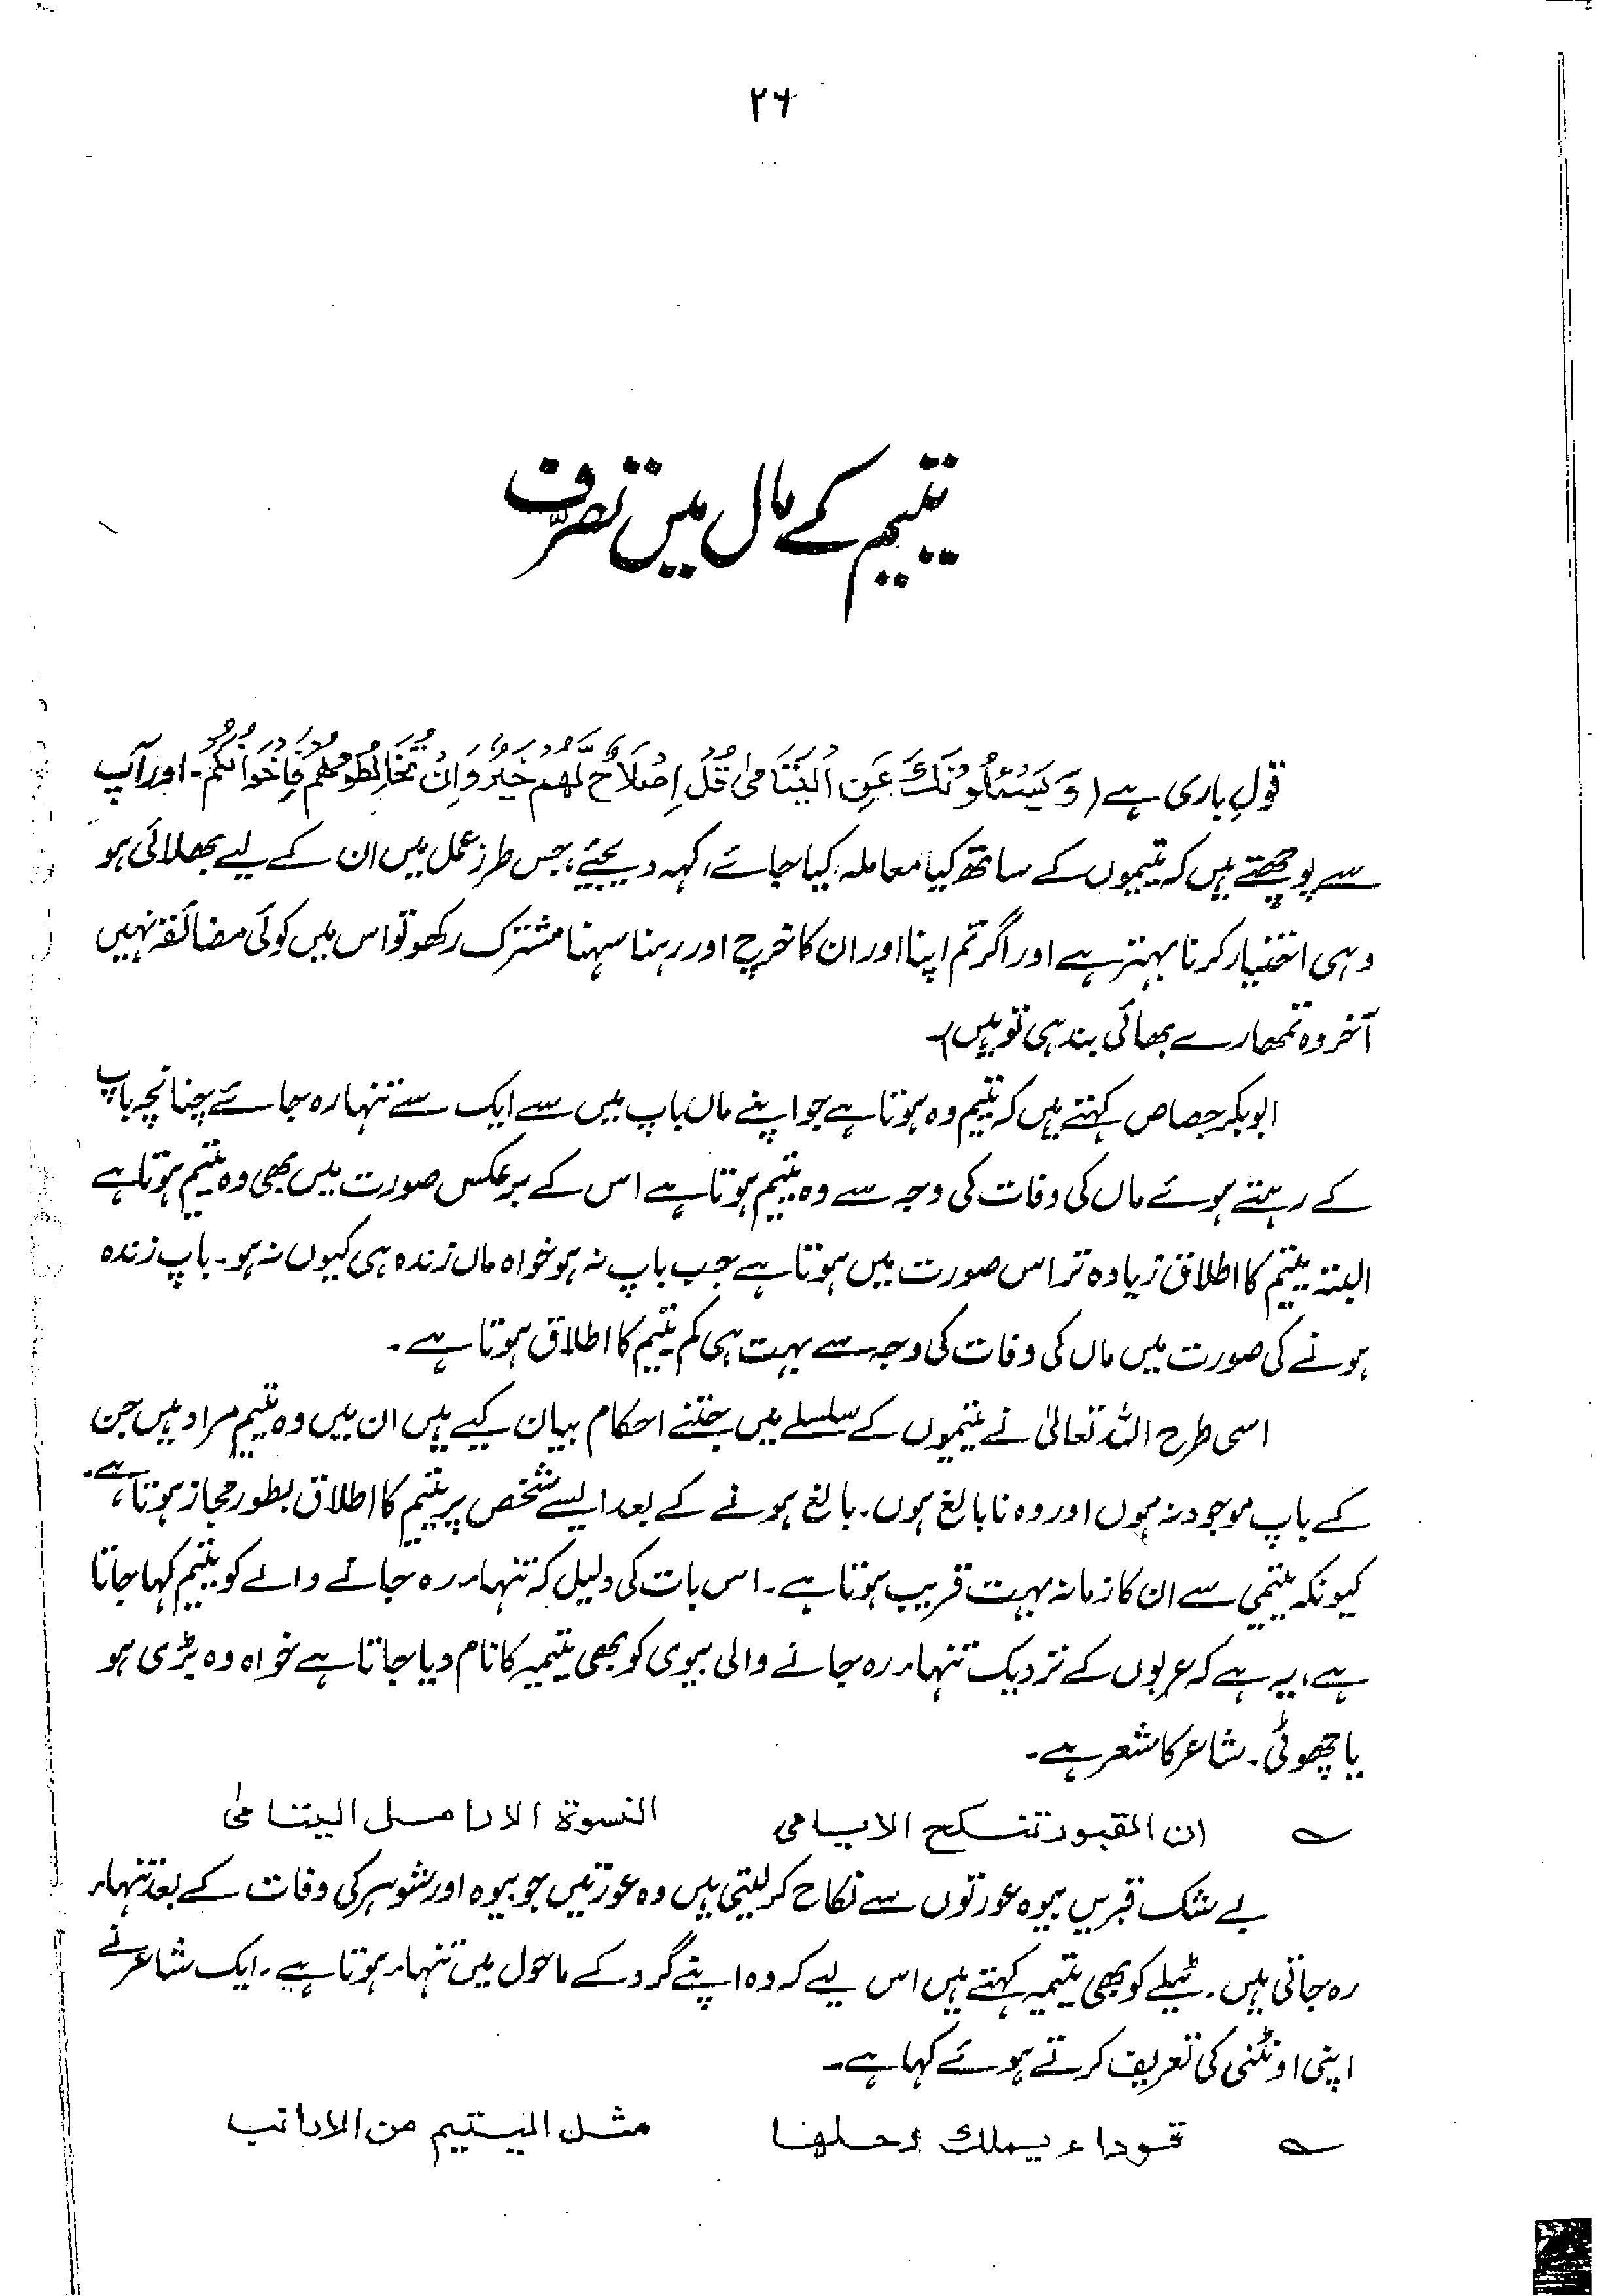 ۲۶
یتیم کے مال میں تصرّف
قولِ باری ہے (وَيَسْئَلُوْنَكَ عَنِ الْيَتَامٰى قُلْ اِصْلَاحٌ لَّهُمْ خَيْرٌ وَاِنْ تُخَالِطُوْهُمْ فَاِخْوَانُكُمْ۔ اور آپ
سے پوچھتے ہیں کہ یتیموں کے ساتھ کیا معاملہ کیا جائے، کہہ دیجئے، جس طرز عمل میں ان کے لیے بھلائی ہو
وہی اختیار کرنا بہتر ہے اور اگر تم اپنا اور ان کا خرچ اور رہنا سہنا مشترک رکھو تو اس میں کوئی مضائقہ نہیں
آخر وہ تمھارے بھائی بند ہی تو ہیں)۔
ابوبکر جصاص کہتے ہیں کہ یتیم وہ ہوتا ہے جو اپنے ماں باپ میں سے ایک سے تنہا رہ جائے چنانچہ باپ
کے رہتے ہوئے ماں کی وفات کی وجہ سے وہ یتیم ہوتا ہے اس کے برعکس صورت میں بھی وہ یتیم ہوتا ہے
البتہ یتیم کا اطلاق زیادہ تر اس صورت میں ہوتا ہے جب باپ نہ ہو خواہ ماں زندہ ہی کیوں نہ ہو۔ باپ زندہ
ہونے کی صورت میں ماں کی وفات کی وجہ سے بہت ہی کم یتیم کا اطلاق ہوتا ہے۔
اسی طرح اللہ تعالیٰ نے یتیموں کے سلسلے میں جتنے احکام بیان کیے ہیں ان میں وہ یتیم مراد ہیں جن
کے باپ موجود نہ ہوں اور وہ نابالغ ہوں۔ بالغ ہونے کے بعد ایسے شخص پر یتیم کا اطلاق بطور مجاز ہوتا ہے،
کیونکہ یتیمی سے ان کا زمانہ بہت قریب ہوتا ہے۔ اس بات کی دلیل کہ تنہا رہ جانے والے کو یتیم کہا جاتا
ہے، یہ ہے کہ عربوں کے نزدیک تنہا رہ جانے والی بیوی کو بھی یتیمہ کا نام دیا جاتا ہے خواہ وہ بڑی ہو
یا چھوٹی۔ شاعر کا شعر ہے۔
ان القبور تنكح الايامى النسوة الارامل اليتامى
بے شک قبریں بیوہ عورتوں سے نکاح کر لیتی ہیں وہ عورتیں جو بیوہ اور شوہر کی وفات کے بعد تنہا
رہ جاتی ہیں۔ ٹیلے کو بھی یتیمہ کہتے ہیں اس لیے کہ وہ اپنے گرد کے ماحول میں تنہا ہوتا ہے۔ ایک شاعر نے
اپنی اونٹنی کی تعریف کرتے ہوئے کہا ہے۔
قوداء يملك رحلها مثل اليتيم من الارانب